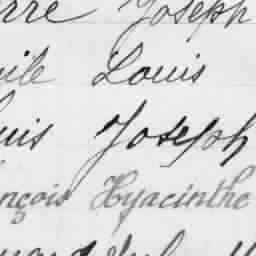 rre Joseph
ile Louis
uis Joseph
nçois Hyacinthe